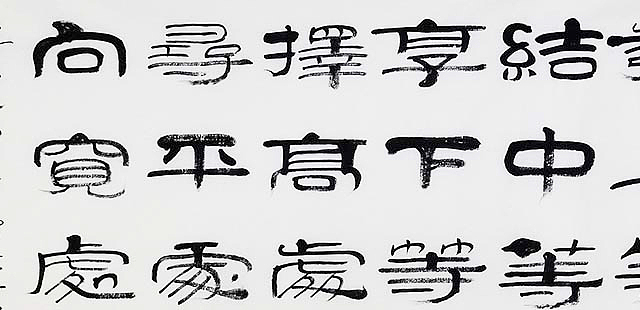 結中等
享下等
擇高處
尋平處
向寬處